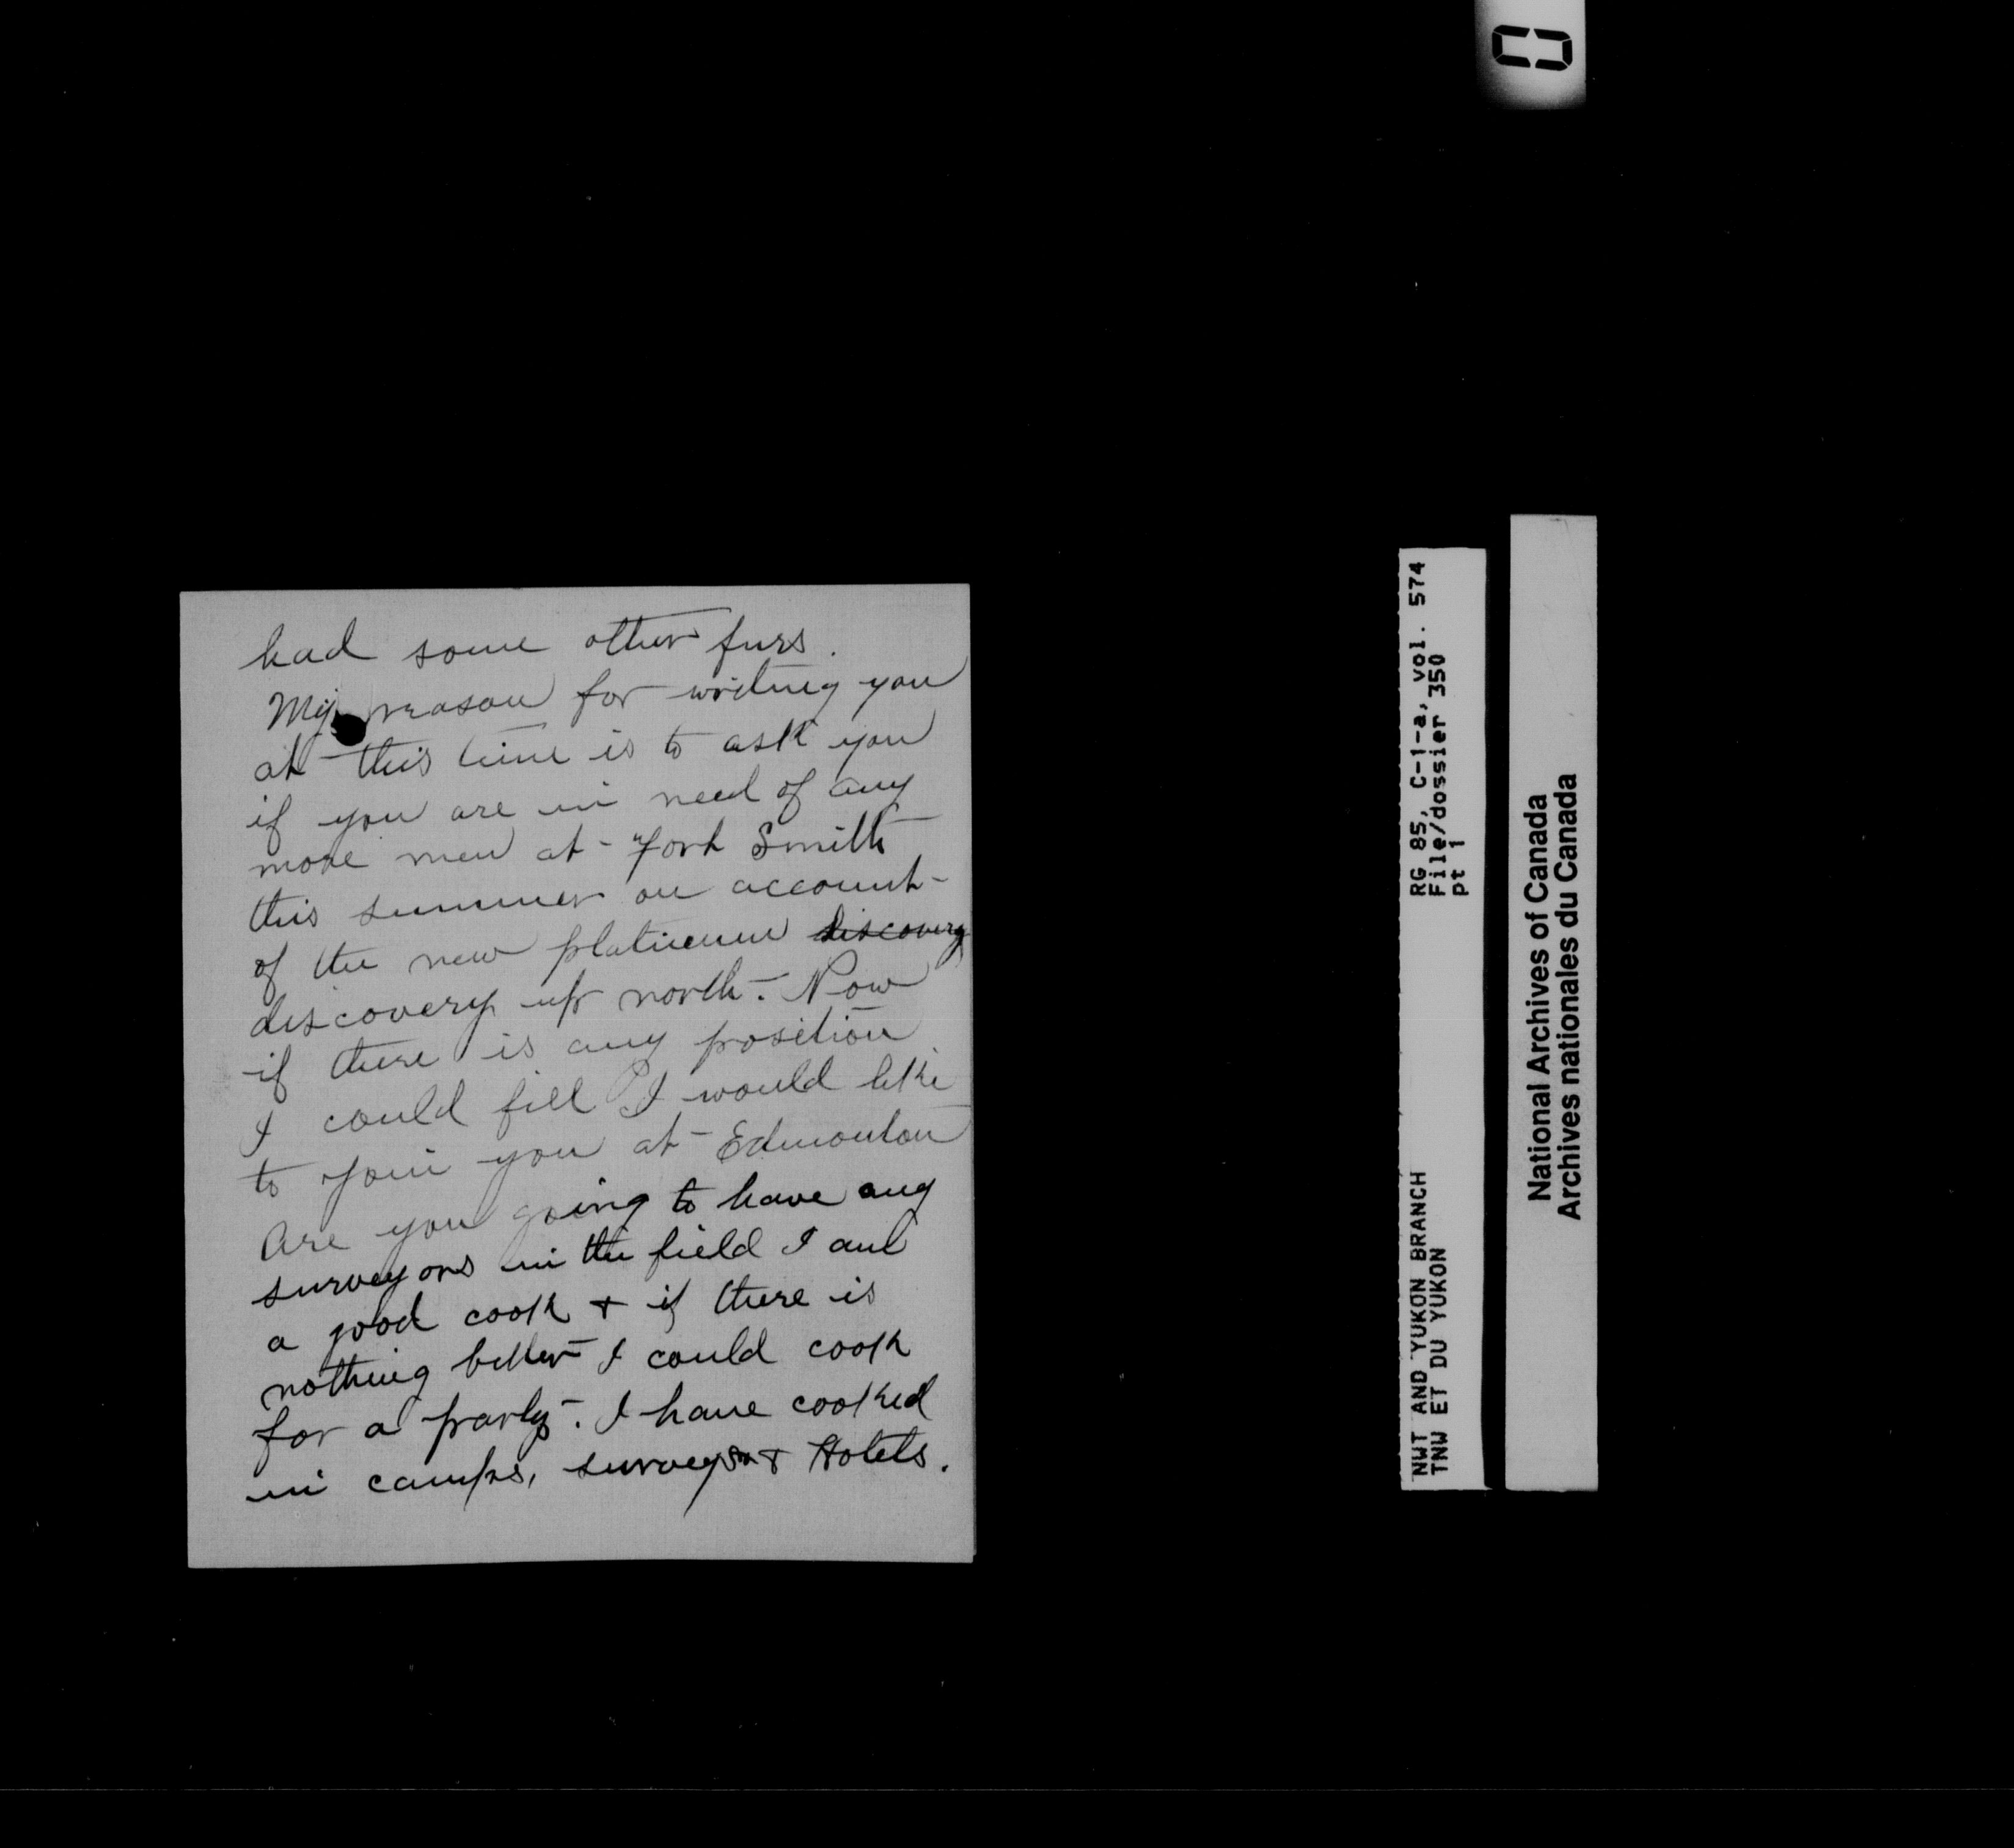 had some other furs.
My reason for writing you
at this time is to ask you
if you are in need of any
more men at Fort Smith
this summer on account
of the new platinum discovery
discovery up north. Now
if there is any position
I could fill I would like
to join you at Edmonton
Are you going to have any
surveyors in the field I am
a good cook + if there is
nothing better I could cook
for a party. I have cooked
in camps, surveys + Hotels.
RG 85, C-1-a, vol. 574
File/dossier 350
pt 1
NWT AND YUKON BRANCH
TNW ET DU YUKON
National Archives of Canada
Archives nationales du Canada